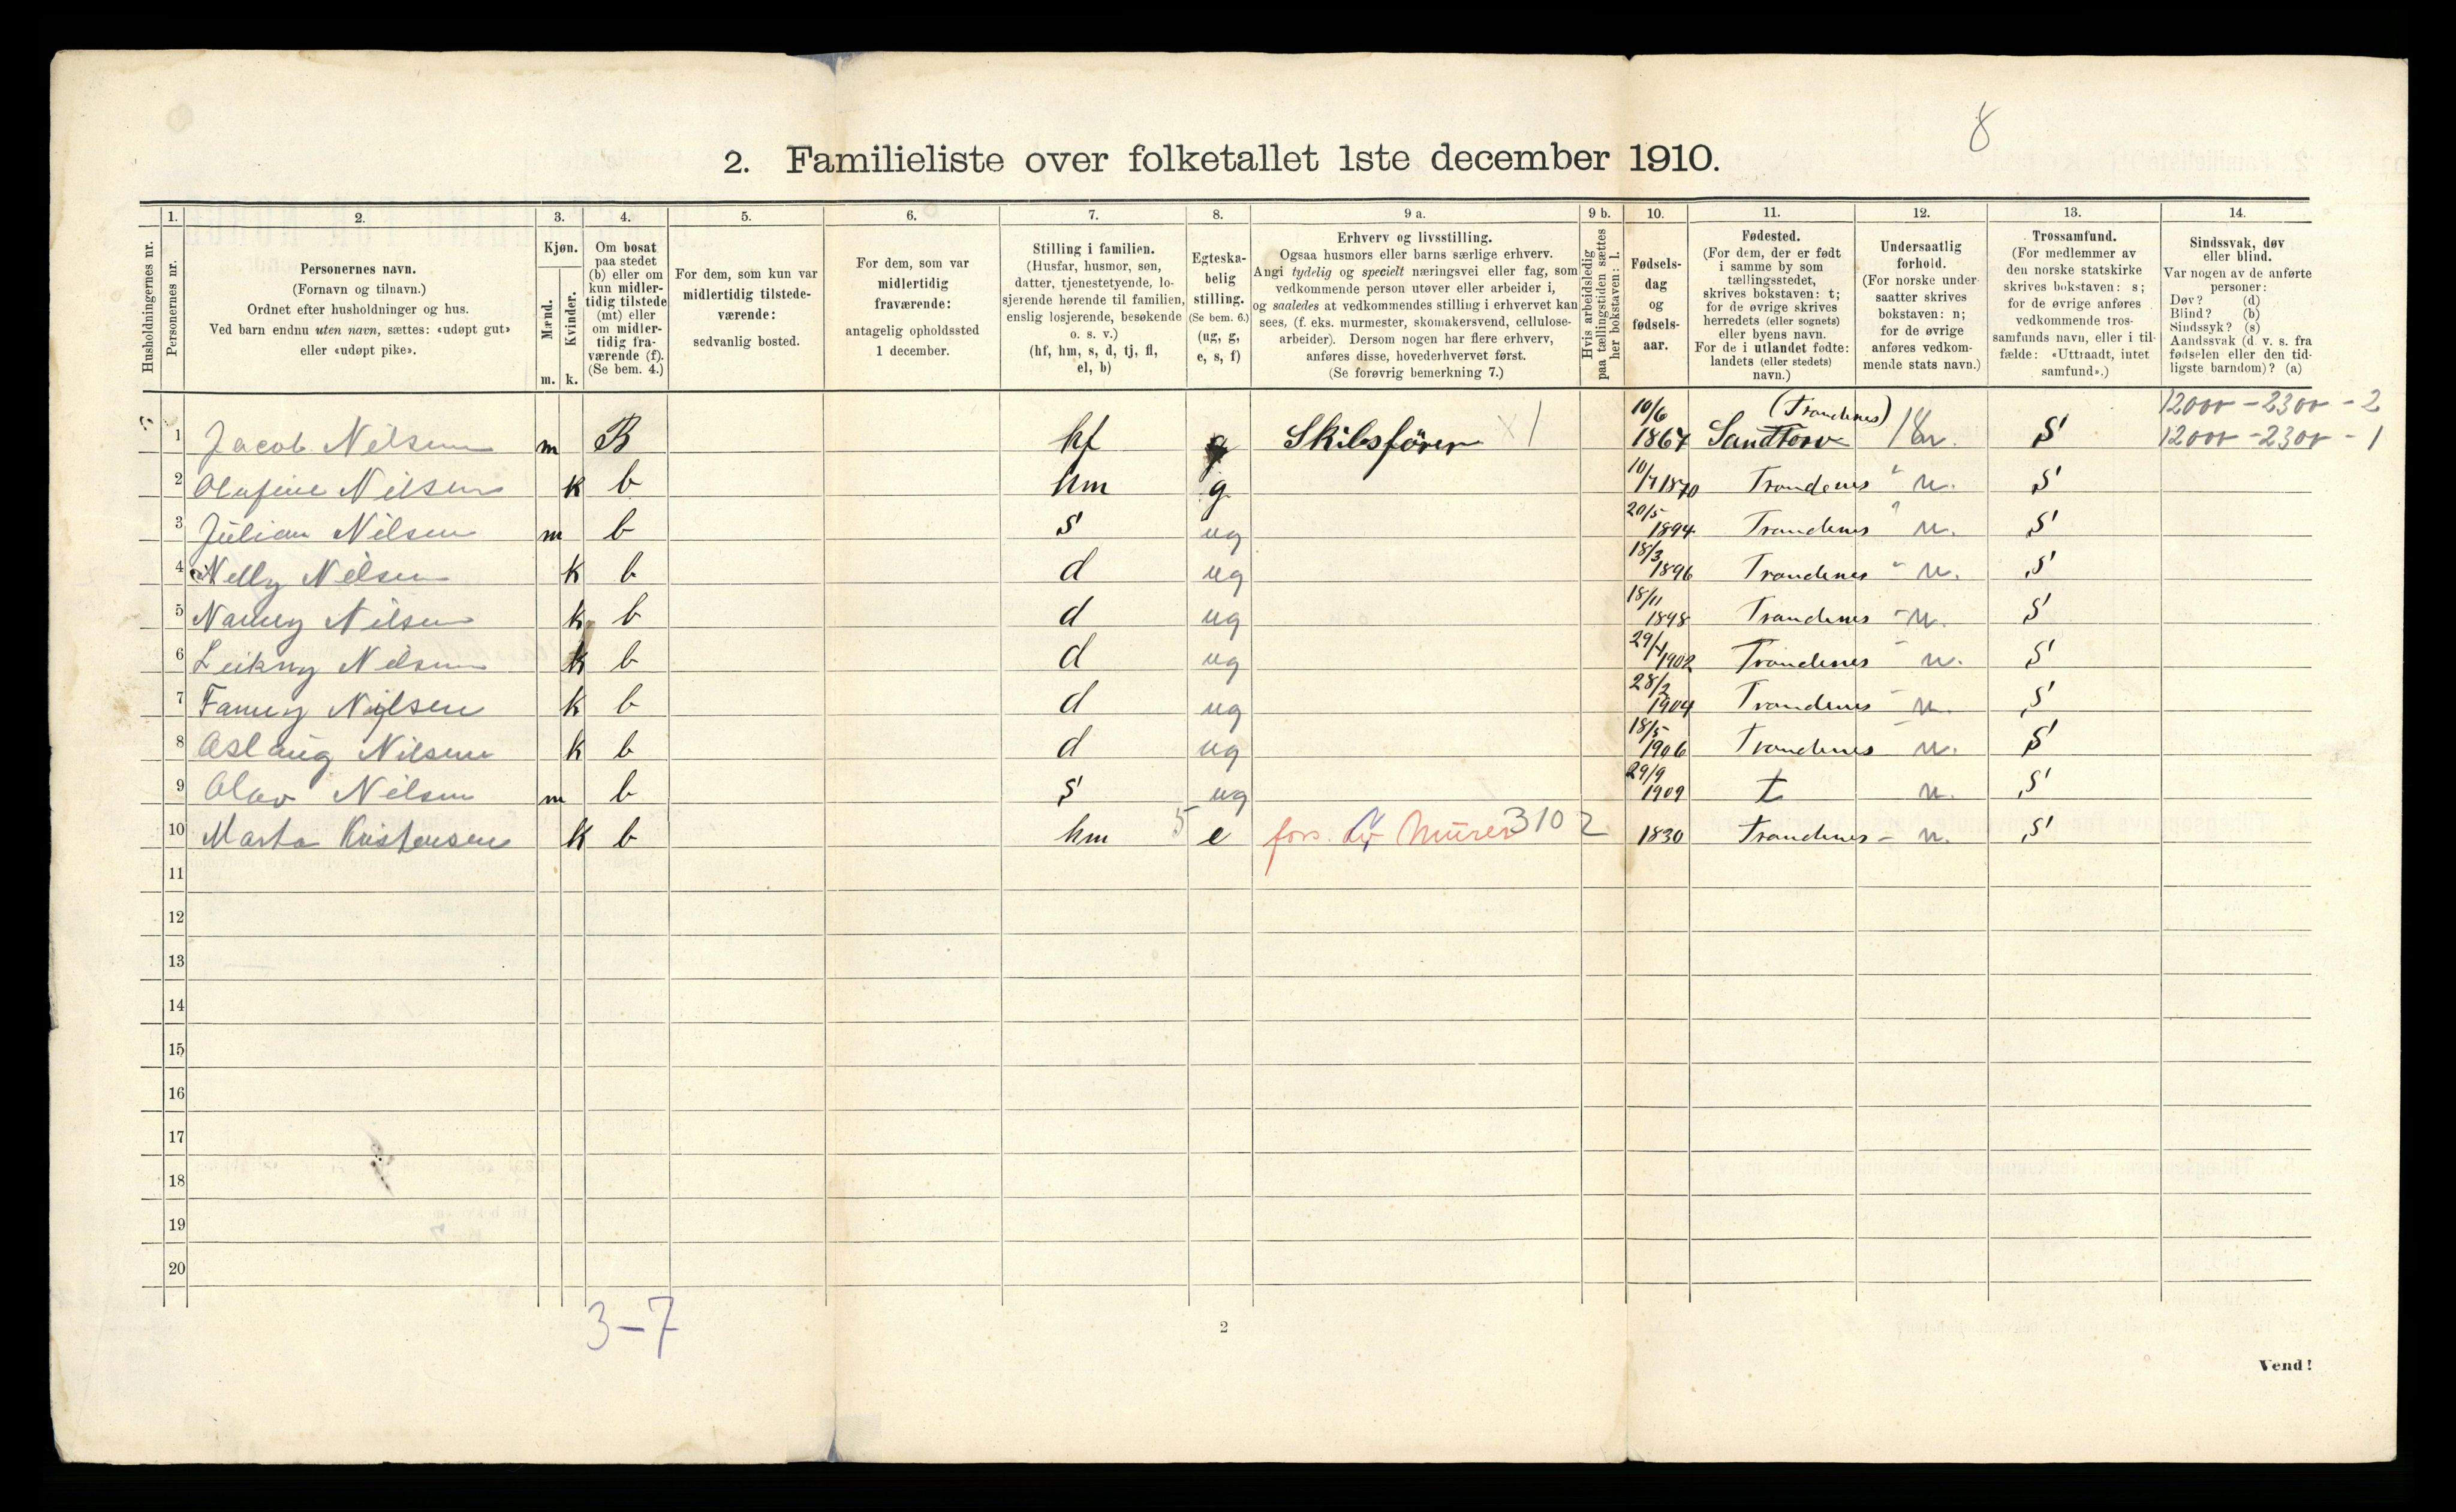 8
2. Familieliste over folketallet 1ste december 1910.
1. 2. 3. 4. 5. 6. 7. 8. 9 a. 9 b. 10. 11. 12. 13. 14.
Husholdningernes nr.
Personernes nr.
Personernes navn.
(Fornavn og tilnavn.)
Ordnet efter husholdninger og hus.
Ved barn endnu uten navn, sættes: «udøpt gut»
eller «udøpt pike».
Kjøn.
Mænd.
Kvinder.
m. k.
Om bosat
paa stedet
(b) eller om
kun midler-
tidig tilstede
(mt) eller
om midler-
tidig fra-
værende (f).
(Se bem. 4.)
For dem, som kun var
midlertidig tilstede-
værende:
sedvanlig bosted.
For dem, som var
midlertidig
fraværende:
antagelig opholdssted
1 december.
Stilling i familien.
(Husfar, husmor, søn,
datter, tjenestetyende, lo-
sjerende hørende til familien,
enslig losjerende, besøkende
o. s. v.)
(hf, hm, s, d, tj, fl,
el, b)
Egteska-
belig
stilling.
(Se bem. 6.)
(ug, g,
e, s, f)
Erhverv og livsstilling.
Ogsaa husmors eller barns særlige erhverv.
Angi tydelig og specielt næringsvei eller fag, som
vedkommende person utøver eller arbeider i,
og saaledes at vedkommendes stilling i erhvervet kan
sees, (f. eks. murmester, skomakersvend, cellulose-
arbeider). Dersom nogen har flere erhverv,
anføres disse, hovederhvervet først.
(Se forøvrig bemerkning 7.)
Hvis arbeidsledig
paa tællingstiden sættes
her bokstaven: l.
Fødsels-
dag
og
fødsels-
aar.
Fødested.
(For dem, der er født
i samme by som
tællingsstedet,
skrives bokstaven: t;
for de øvrige skrives
herredets (eller sognets)
eller byens navn.
For de i utlandet fødte:
landets (eller stedets)
navn.)
Undersaatlig
forhold.
(For norske under-
saatter skrives
bokstaven: n;
for de øvrige
anføres vedkom-
mende stats navn.)
Trossamfund.
(For medlemmer av
den norske statskirke
skrives bokstaven: s;
for de øvrige anføres
vedkommende tros-
samfunds navn, eller i til-
fælde: «Uttraadt, intet
samfund».)
Sindssvak, døv
eller blind.
Var nogen av de anførte
personer:
Døv? (d)
Blind? (b)
Sindssyk? (s)
Aandssvak (d. v. s. fra
fødselen eller den tid-
ligste barndom)? (a)
(Trondenes) 12000 - 2300 - 2
1 Jacob Nilsen m B hf g Skibsfører x 1 10/6 1867 Sandtorv 18 n. S 12000 - 2300 - 1
2 Olufine Nilsen k b hm g 10/7 1870 Trondenes " n. S
3 Julian Nilsen m b s ug 20/5 1894 Trondenes " n. S
4 Nelly Nilsen k b d ug 18/3 1896 Trondenes " n. S
5 Nanny Nilsen k b d ug 18/11 1898 Trondenes - n. S
6 Leikny Nilsen k b d ug 29/4 1902 Trondenes - n. S
7 Fanny Nilsen k b d ug 28/2 1904 Trondenes - n. S
8 Aslaug Nilsen k b d ug 18/5 1906 Trondenes - n. S
9 Olav Nilsen m b s ug 29/9 1909 t n. S
10 Marta Kristensen k b hm 5 e fors. av Murer 310 2 1830 Trondenes - n. S
11
12
13
14
15
16
17
18
19
20
3-7
2
Vend!